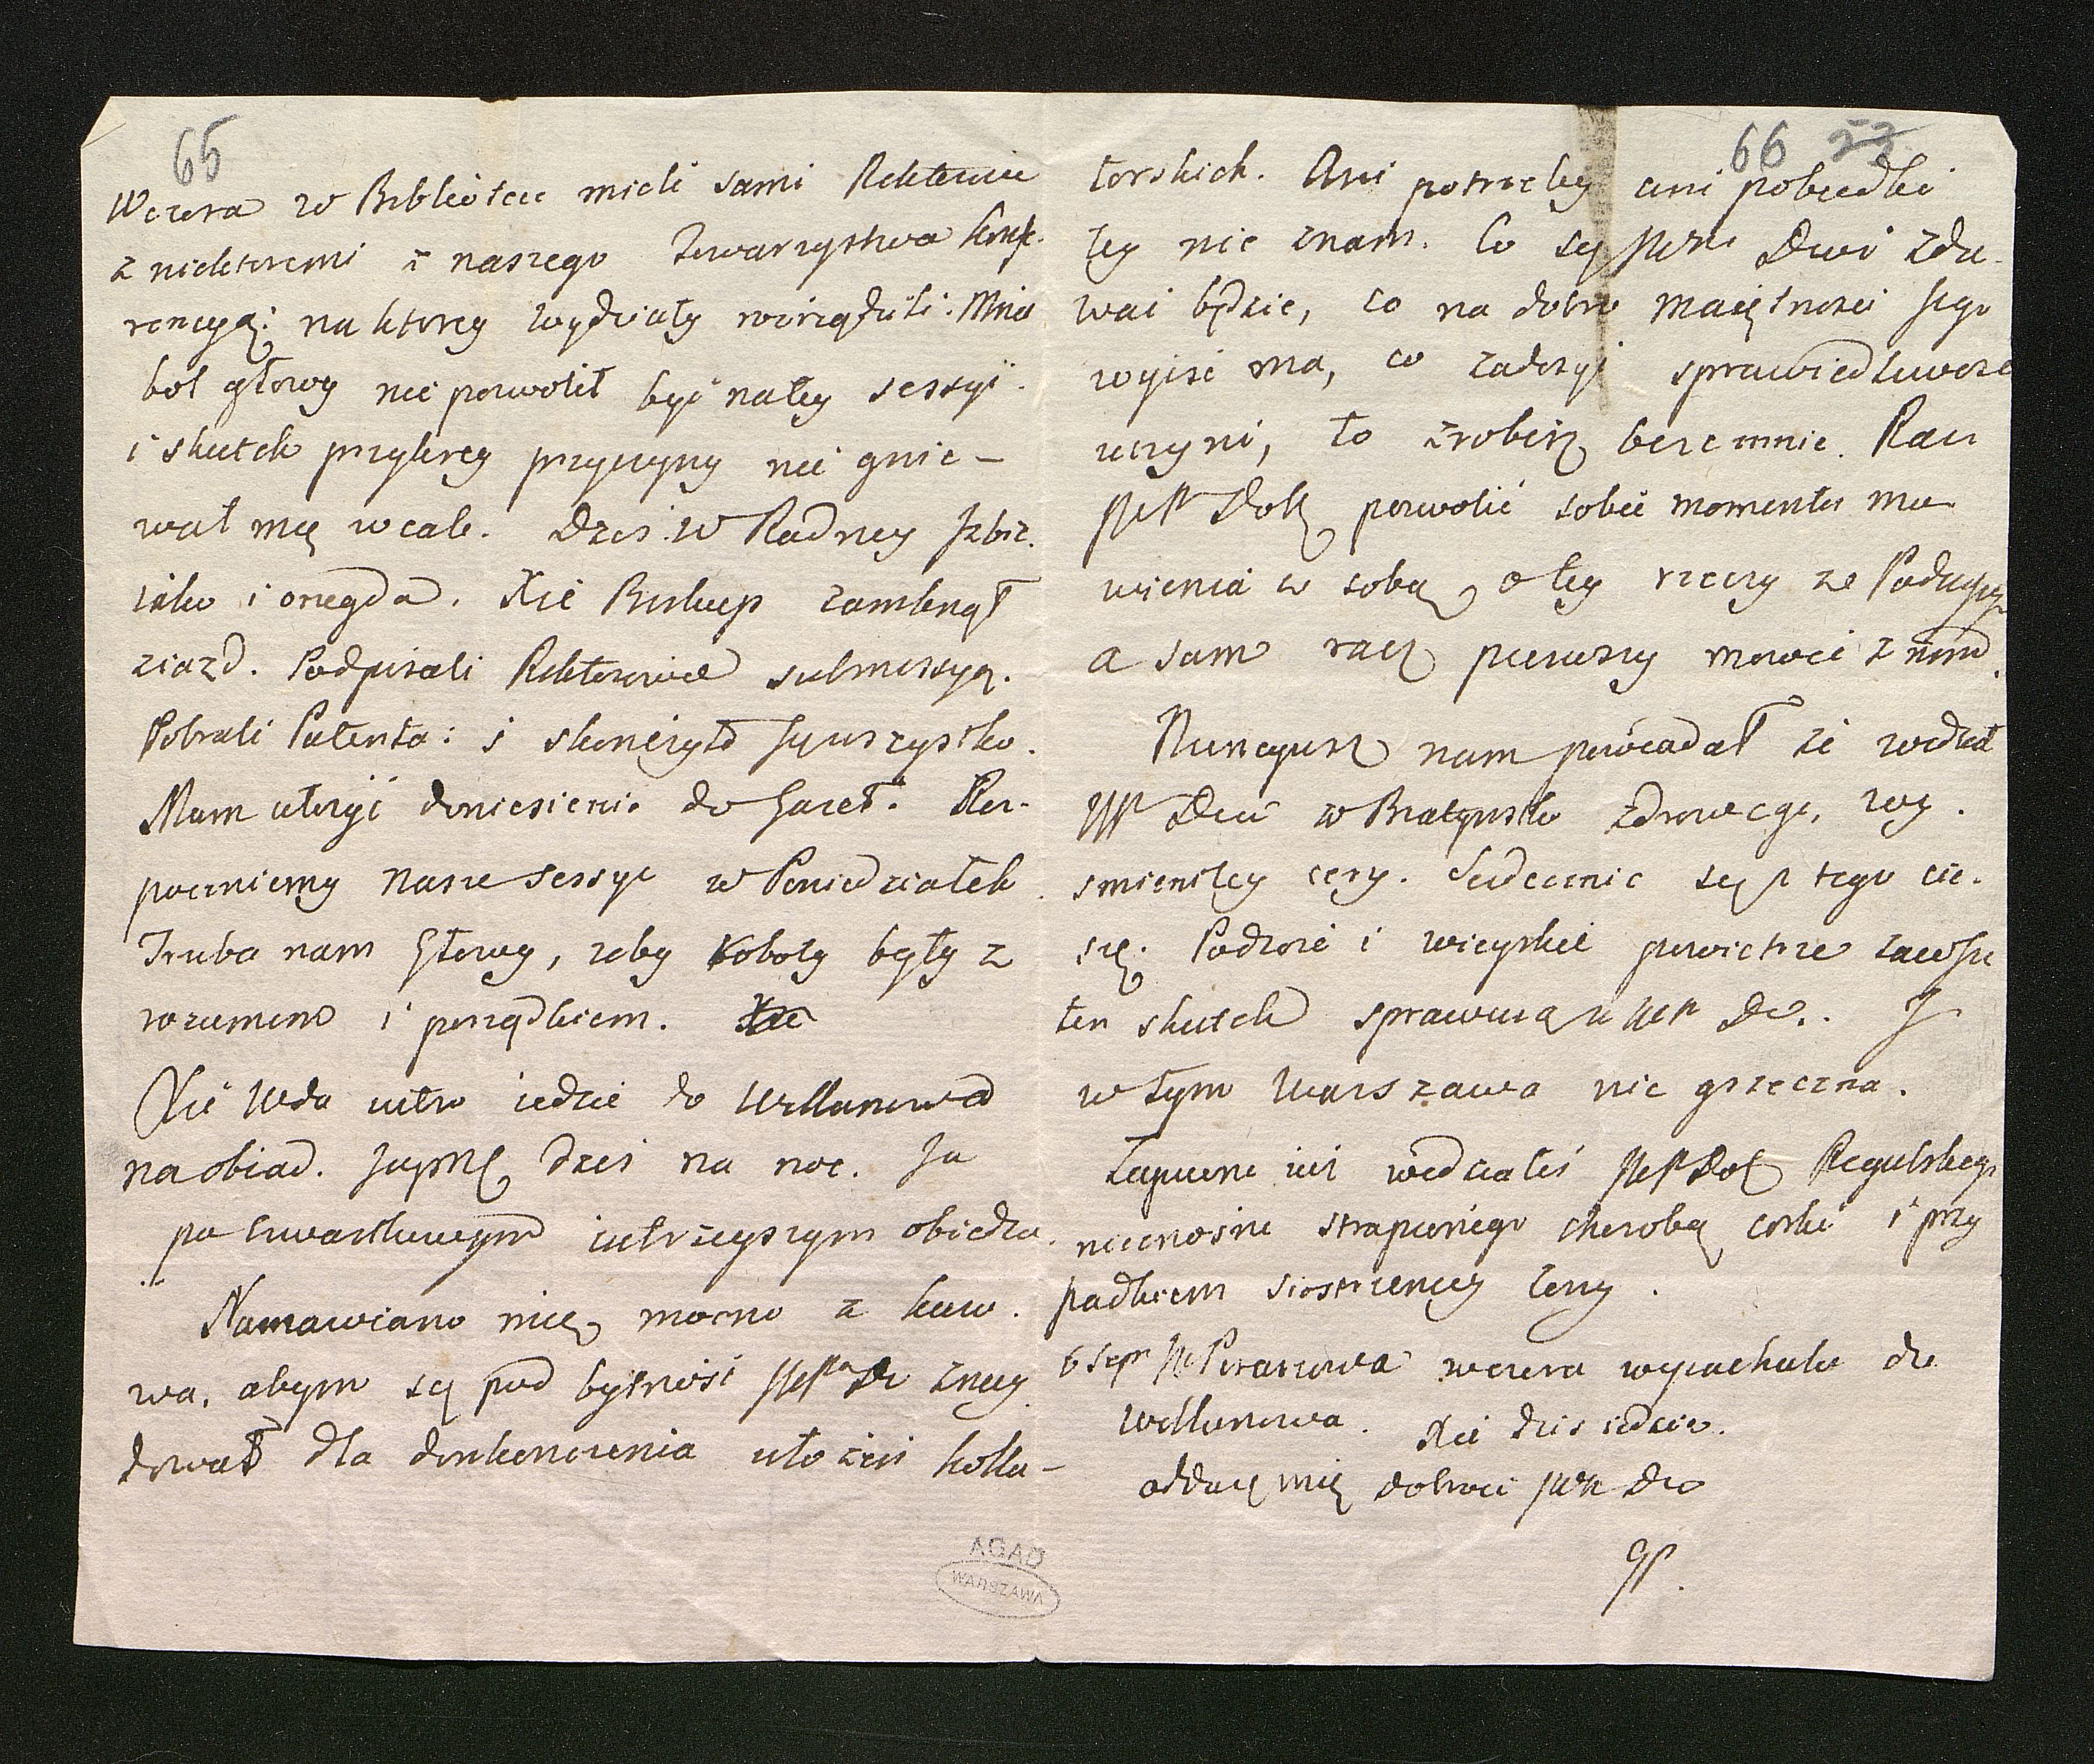 65
Wczora w Bibliotece mieli sami Rektorowie
z niektoremi z naszego Towarzystwa konfe-
rencyą: na ktorey wydziały rozrządzili. Mnie
bol głowy nie pozwolił być na tey sessyi.
i skutek przykrey przyczyny nie gnie-
wał mię wcale. Dziś w Radney Izbie.
iako i onegda. Xże Biskup zamknął
ziazd. Podpisali Rektorowie submissyą.
Pobrali Patenta: i skończyło się wszystko.
Mam ułożyć doniesienie do Gazet. Roz-
poczniemy nasze sessye w Poniedziałek.
Trzeba nam głowy, zeby roboty były z
rozumem i porządkiem.
Xże Wda iutro iedzie do Willanowa
na obiad. Xżna dziś na noc. Ja
po czwartkowym iutrzeyszym obiedzie.
Namawiano mię mocno z
wa, abym się pod bytność JWPa Do znay-
dował dla dokonczenia ułożeń kolla-
AGAD
WARSZAWA
66 23
torskich. Ani potrzeby ani pobudki
tey nie znam. Co się JWPa Dwi zda-
wać będzie, co na dobro maiętności Jego
wyiść ma, co zadosyć sprawiedliwości
uczyni, to zrobisz beze mnie. Racz
JWP Dob pozwolić sobie momentu mó-
wienia z sobą o tey rzeczy ze
a sam racz pierwszy mowić z nim.
Nuncyusz nam powiadał że widział
JWP Dzia w Białymstoku zdrowego, wy-
smienitey cery. Serdecznie się z tego cie-
szę. Podroż i wieyskie powietrze zawsze
ten skutek sprawuią w JWP Do.
w tym Warszawa nie grzeczna.
Zapewne iuż widziałeś JWP Dob Regulskiego
nieznośnie strapionego chorobą corki i przy
padkiem siostrzenicy żony.
6 Sepr wczora wyiachała do
Willanowa. Xże dziś iedzie.
oddaię mię dobroci JWPa Do
GP.